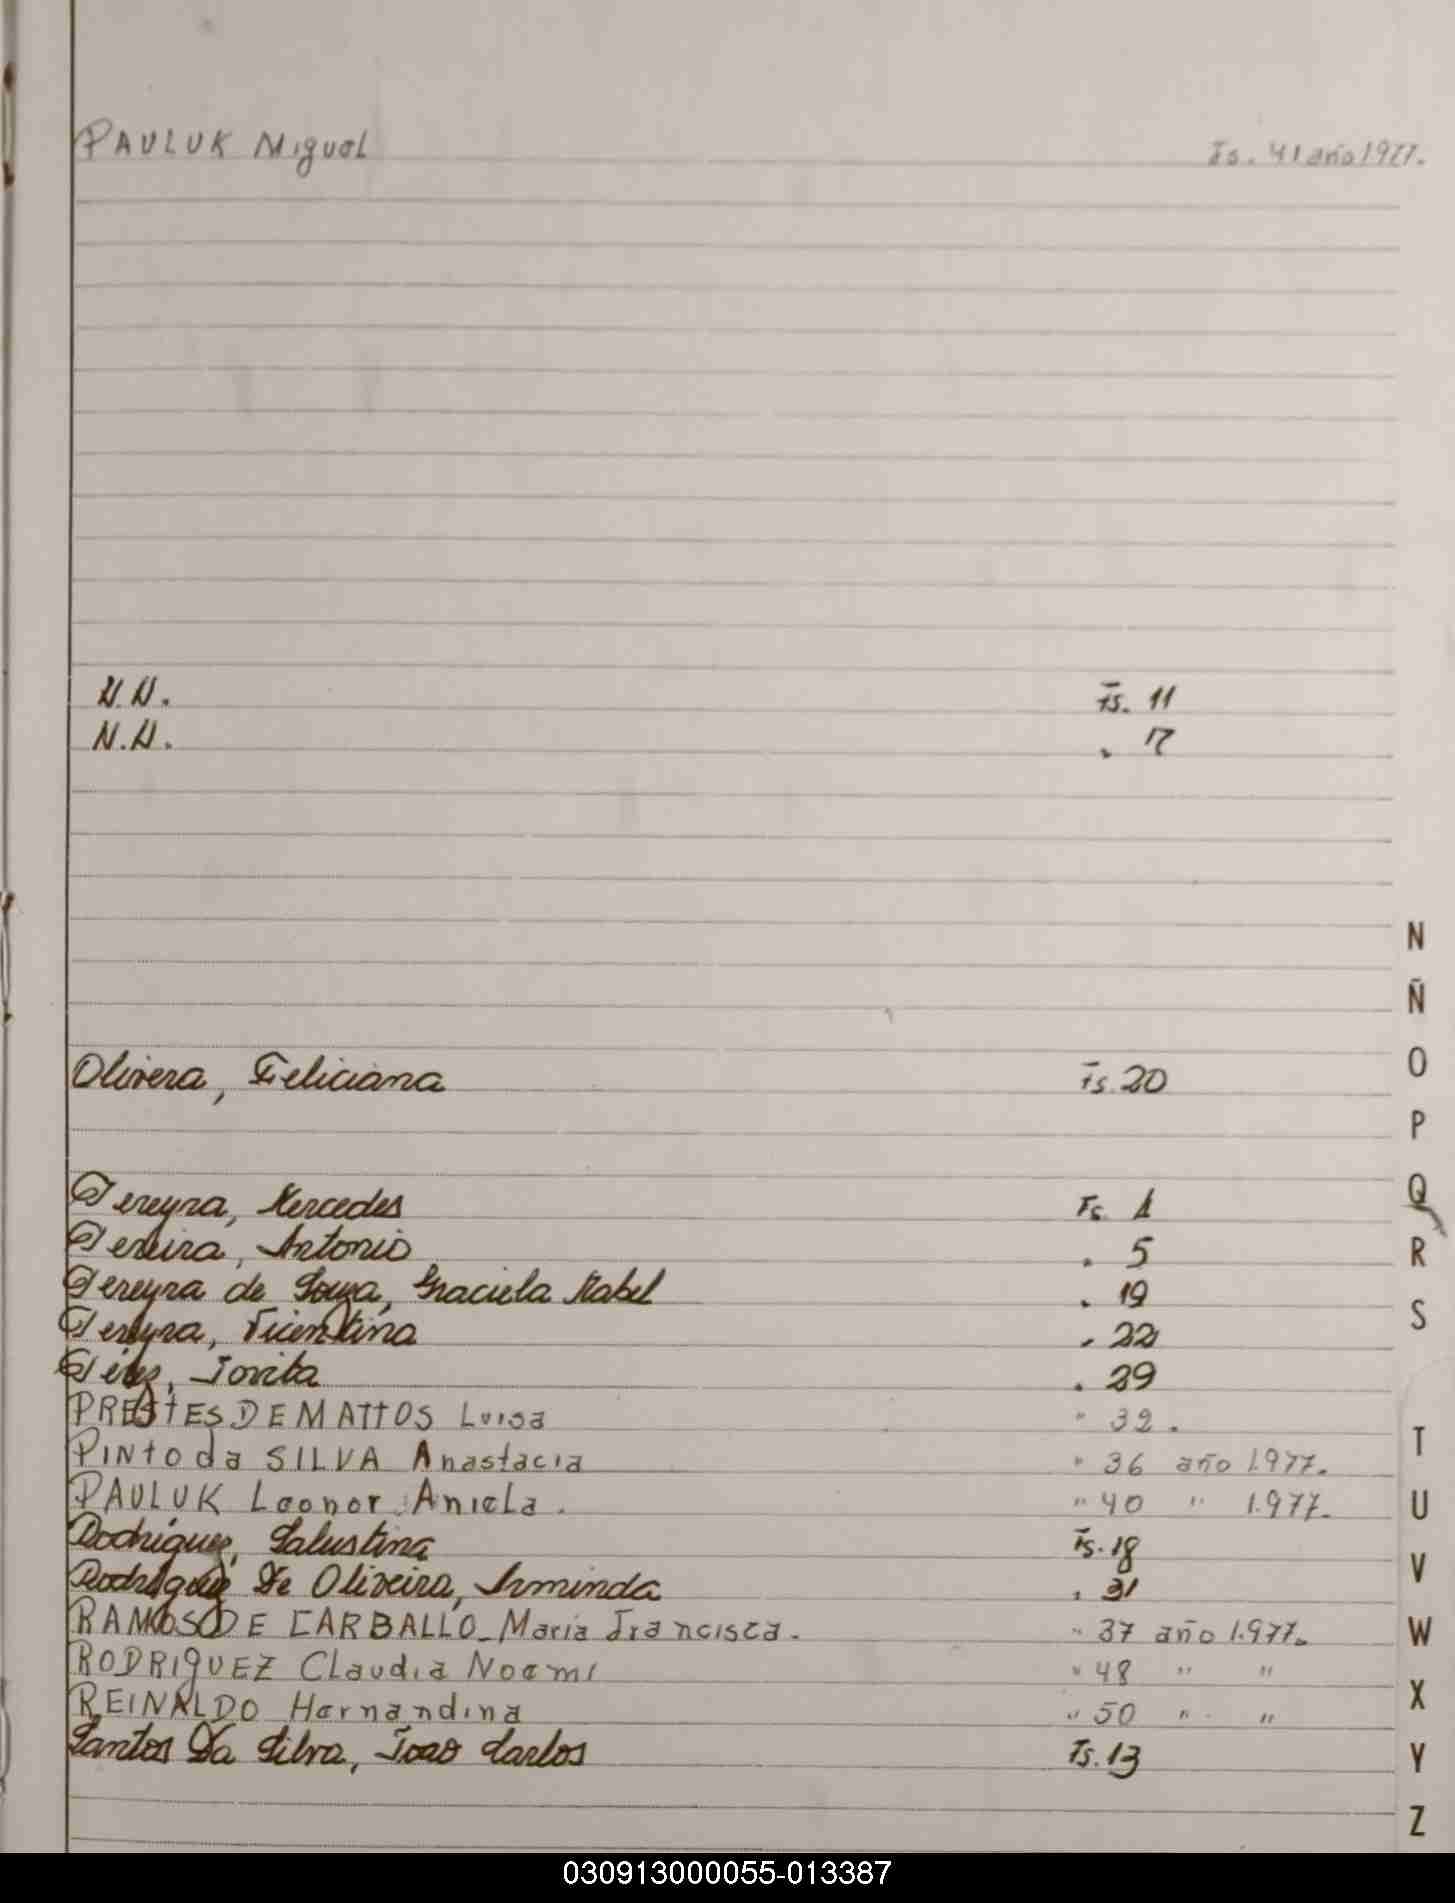 PAULUK Miguel Fs. 41 año 1977.
N.N. Fs. 11
N.N. " 17
N
Ñ
Olivera, Feliciana Fs. 20
O
P
Pereyra, Mercedes Fs. 1
Q
Pereira, Antonio " 5
R
Pereyra de Souza, Graciela Mabel " 19
S
Pereyra, Vicentina " 22
Jovita " 29
PRESTES DE MATTOS Luisa " 32.
T
PINTO da SILVA Anastacia " 36 año 1.977.
PAULUK Leonor Aniela. " 40 " 1.977.
U
Rodriguez, Salustina Fs. 18
V
Rodriguez De Oliveira, Arminda " 31
RAMOS DE CARBALLO_ Maria Francisca. " 37 año 1.977.
W
RODRIGUEZ Claudia Noemi " 48 " "
X
REINALDO Hernandina " 50 " "
Santos Da Silva, Joao Carlos Fs. 13
Y
Z
030913000055-013387